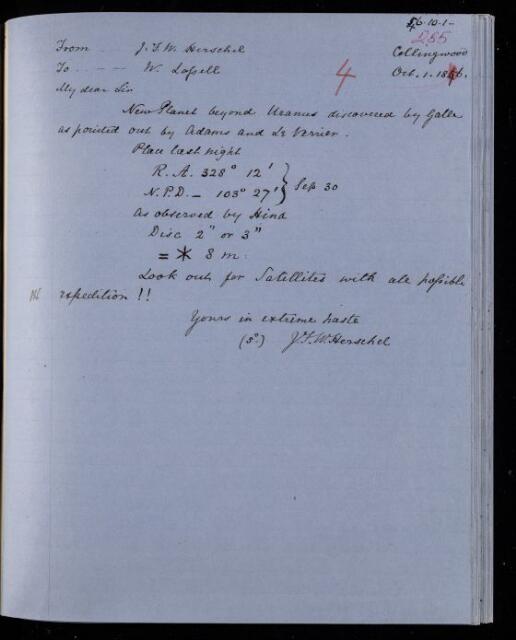 255
From J.F.W. Herschel
Collingwood
To W. Lassell
4
Oct. 1. 1846.
My dear Sir
New Planet beyond Uranus discovered by Galle
as pointed out by Adams and Le Verrier.
Place last night
R.A. 328° 12' } Sep 30
N.P.D. — 103° 27' }
As observed by Hind
Disc 2" or 3"
= * 8 m.
Look out for Satellites with all possible
expedition !!
Yours in extreme haste
J.F.W. Herschel